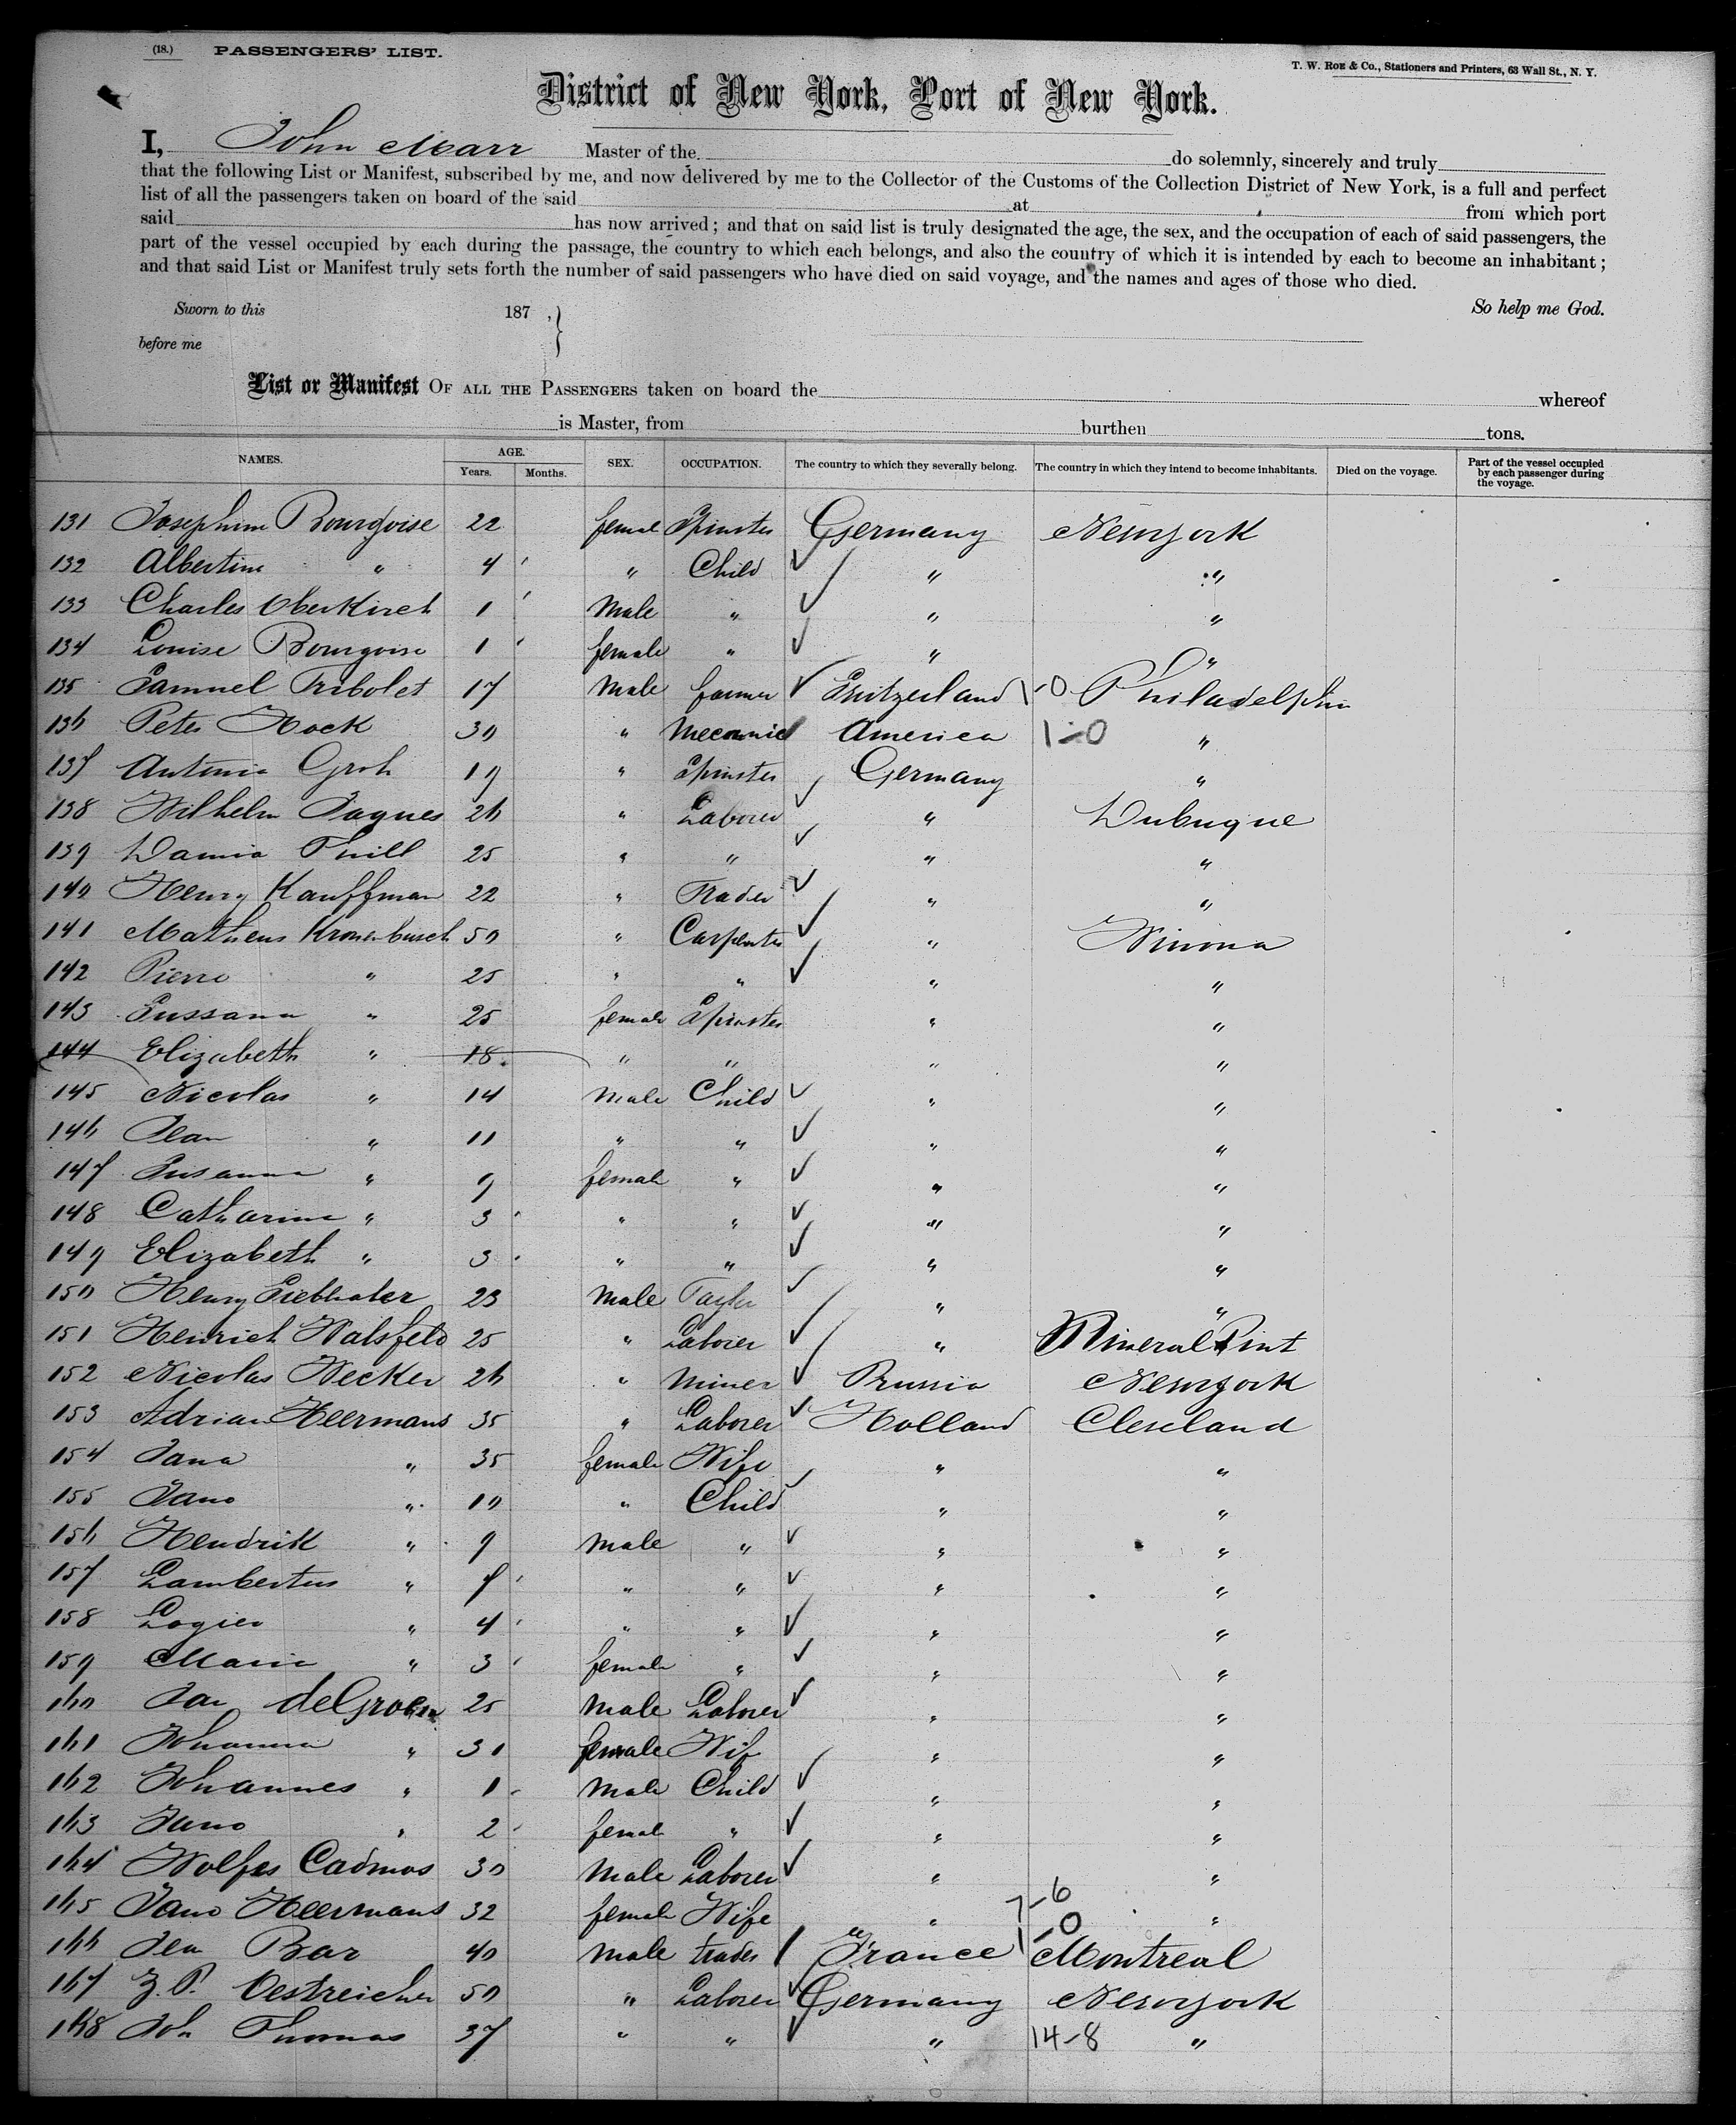 (18.) PASSENGERS' LIST.
T. W. ROE & Co., Stationers and Printers, 63 Wall St., N. Y.
District of New York, Port of New York.
I, John Marr Master of the do solemnly, sincerely and truly
that the following List or Manifest, subscribed by me, and now delivered by me to the Collector of the Customs of the Collection District of New York, is a full and perfect
list of all the passengers taken on board of the said at from which port
said has now arrived; and that on said list is truly designated the age, the sex, and the occupation of each of said passengers, the
part of the vessel occupied by each during the passage, the country to which each belongs, and also the country of which it is intended by each to become an inhabitant;
and that said List or Manifest truly sets forth the number of said passengers who have died on said voyage, and the names and ages of those who died.
Sworn to this 187 , } So help me God.
before me
List or Manifest OF ALL THE PASSENGERS taken on board the whereof
is Master, from burthen tons.
NAMES. AGE. Years. Months. SEX. OCCUPATION. The country to which they severally belong. The country in which they intend to become inhabitants. Died on the voyage. Part of the vessel occupied by each passenger during the voyage.
131 Josephine Bourgoise 22 female Spinster Germany Newyork
132 Albertine " 4 " Child " "
133 Charles Oberkirch 1 Male " " "
134 Louise Bourgoise 1 female " " "
135 Samuel Tribolet 17 Male farmer Switzerland 1-0 Philadelphia
136 Peter Hock 30 " Mecannic America 1-0 "
137 Antonia Groh 19 " Spinster Germany "
138 Wilhelm Jaques 26 " Laborer " Dubuque
139 Thill 25 " " " "
140 Henry Kauffman 22 " Trader " "
141 Matheus Kronenbusch 50 " Carpenter " Winona
142 Pierre " 25 " " " "
143 Sussana " 25 female Spinster " "
144 Elizabeth " 18 " " " "
145 Nicolas " 14 Male Child " "
146 Jean " 11 " " " "
147 Susanna " 9 female " " "
148 Catharine " 3 " " " "
149 Elizabeth " 3 " " " "
150 Henry 23 Male Taylor " "
151 Henrich Walsfeld 25 " Laborer " Mineral Pint
152 Nicolas Necker 26 " Miner Prussia Newyork
153 Adrian Heermans 35 " Laborer Holland Cleveland
154 Jana " 35 female Wife " "
155 Jano " 10 " Child " "
156 Hendrik " 9 Male " " "
157 Lambertus " 7 " " " "
158 Logier " 4 " " " "
159 Maria " 3 female " " "
160 Jan deGroen 25 Male Laborer " "
161 Johanna " 31 female Wif " "
162 Johannes " 1 Male Child " "
163 Jano " 2 female " " "
164 Cadmos 30 Male Laborer " "
165 Jano Heermans 32 female Wife " 7-6 "
166 Jea Bar 40 Male trader France 1-0 Montreal
167 J. P. Oestreicher 50 " Laborer Germany Newyork
168 Joh Thomas 37 " " " 14-8 "